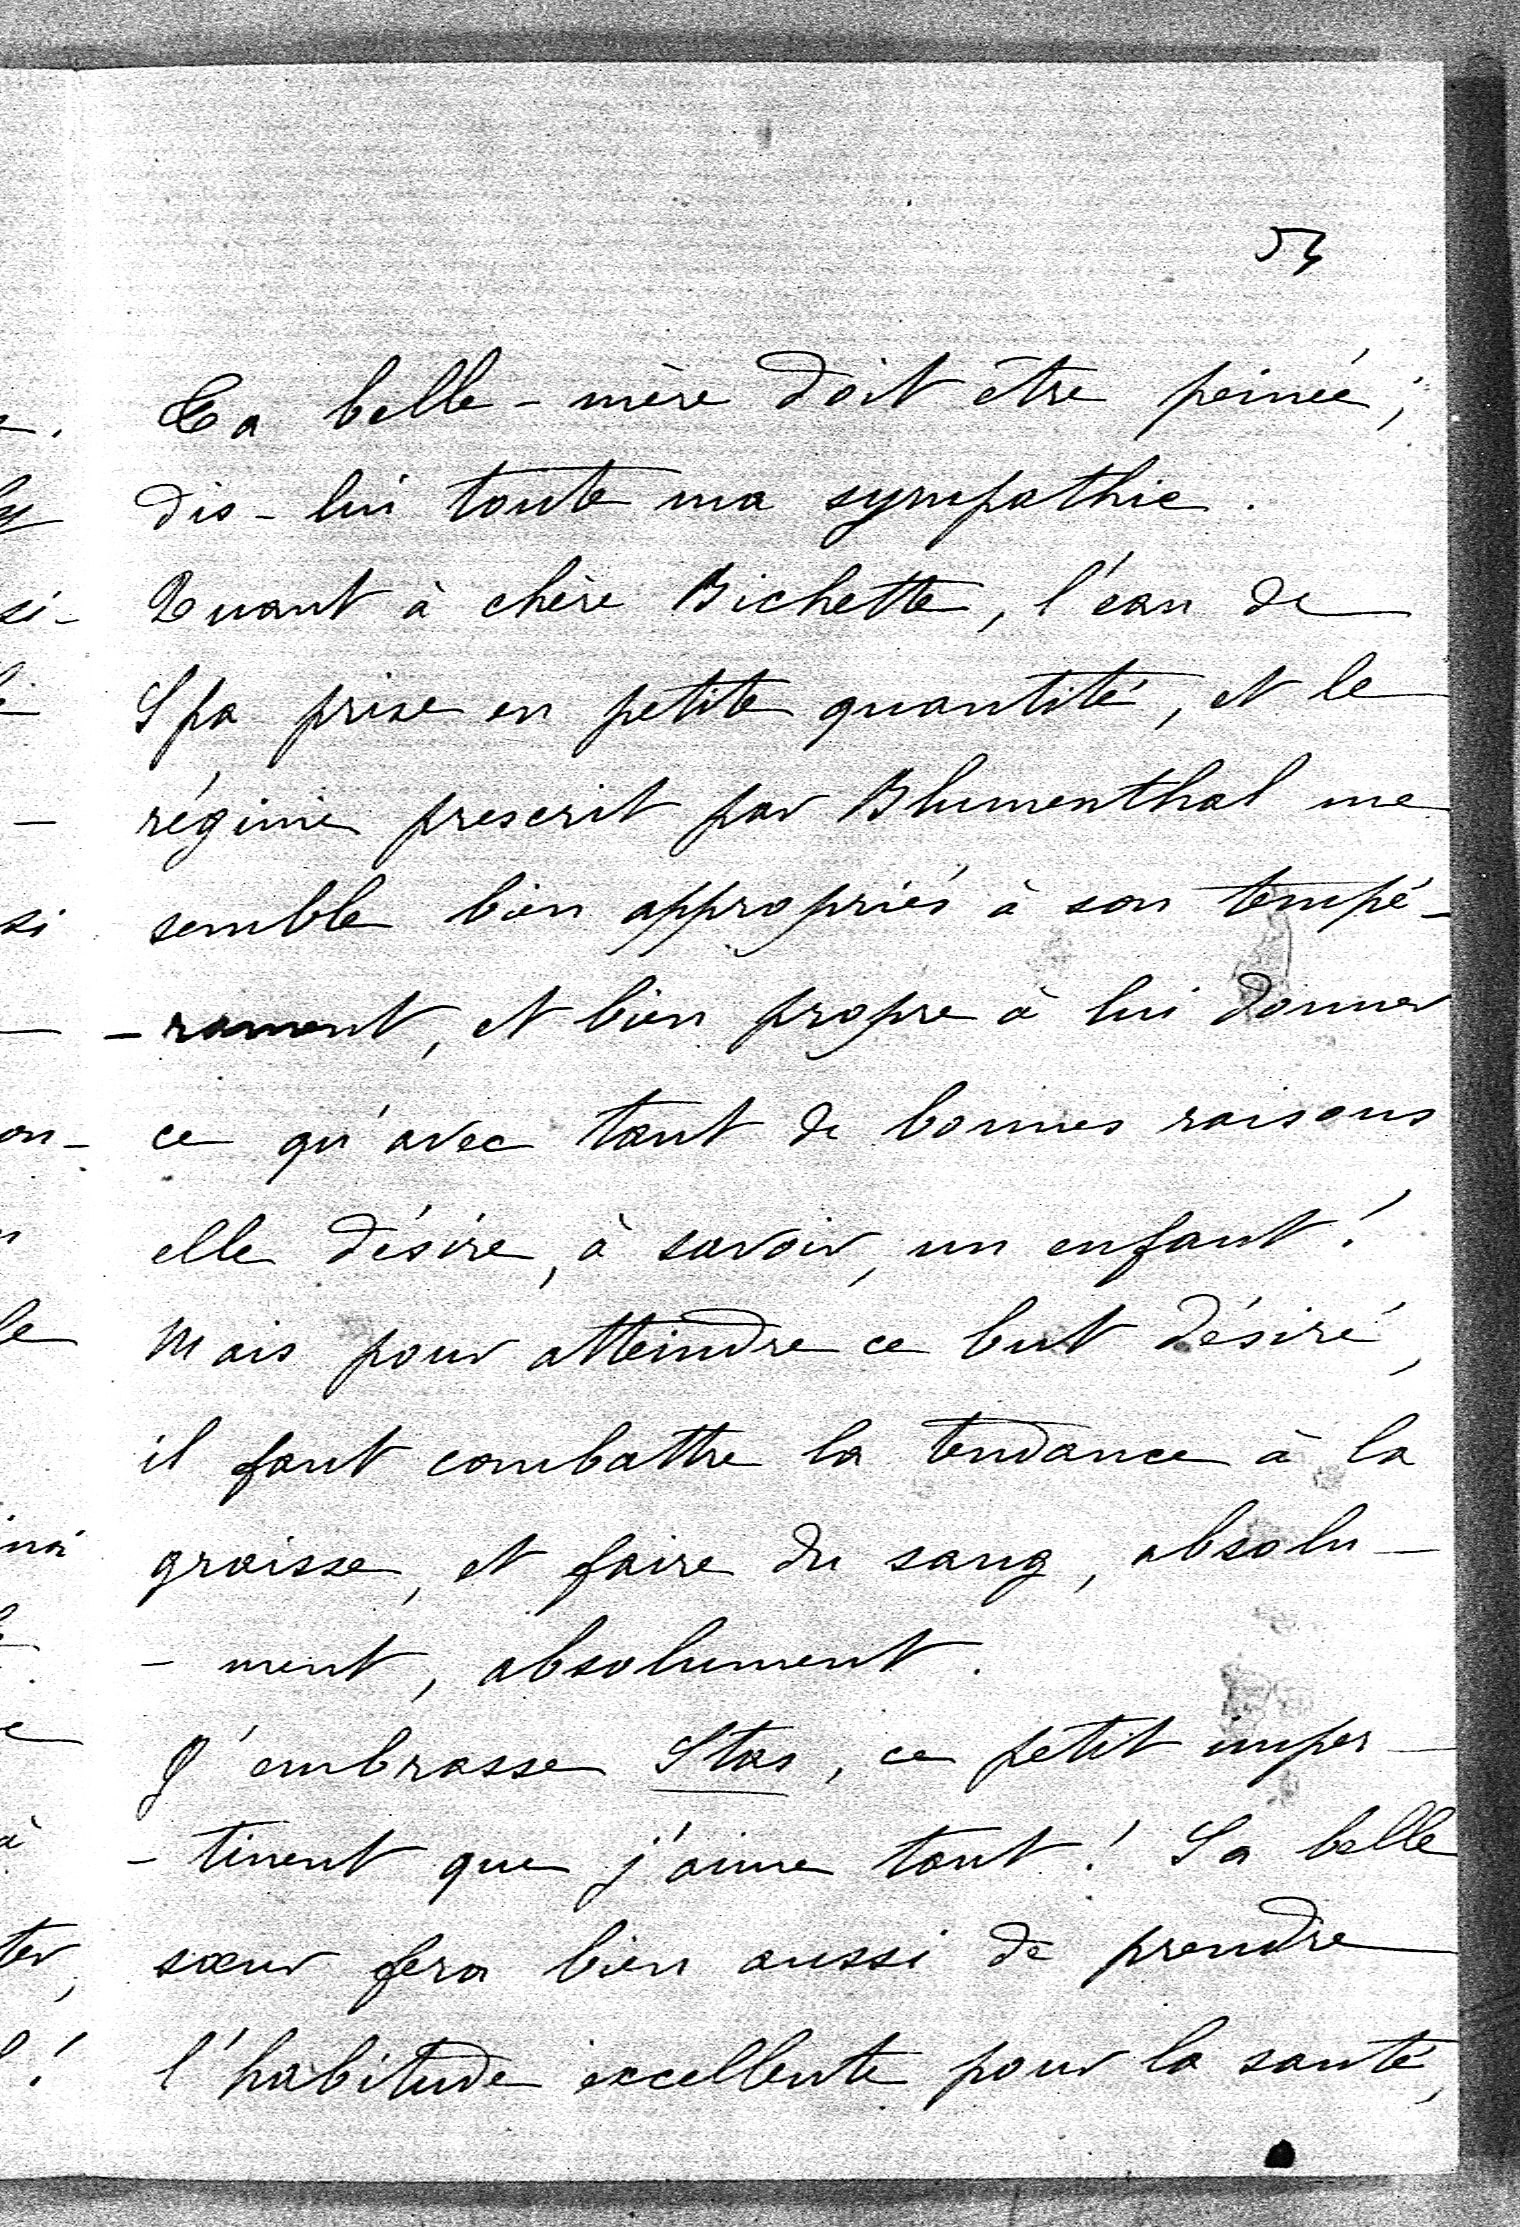 54
Ta belle-mère doit être peinée;
dis-lui toute ma sympathie.
Quant à chère Bichette, l'eau de
Spa prise en petite quantité, et le
régime prescrit par Blumenthal me
semble bien appropriés à son tempé-
-rament, et bien propre à lui donner
ce qu'avec tant de bonnes raisons
elle désire, à savoir, un enfant!
Mais pour atteindre ce but désiré,
il faut combattre la tendance à la
graisse, et faire du sang, absolu-
-ment, absolument.
J'embrasse Stas, ce petit imper-
-tinent que j'aime tant! Sa belle
sœur fera bien aussi de prendre
l'habitude excellente pour la santé,